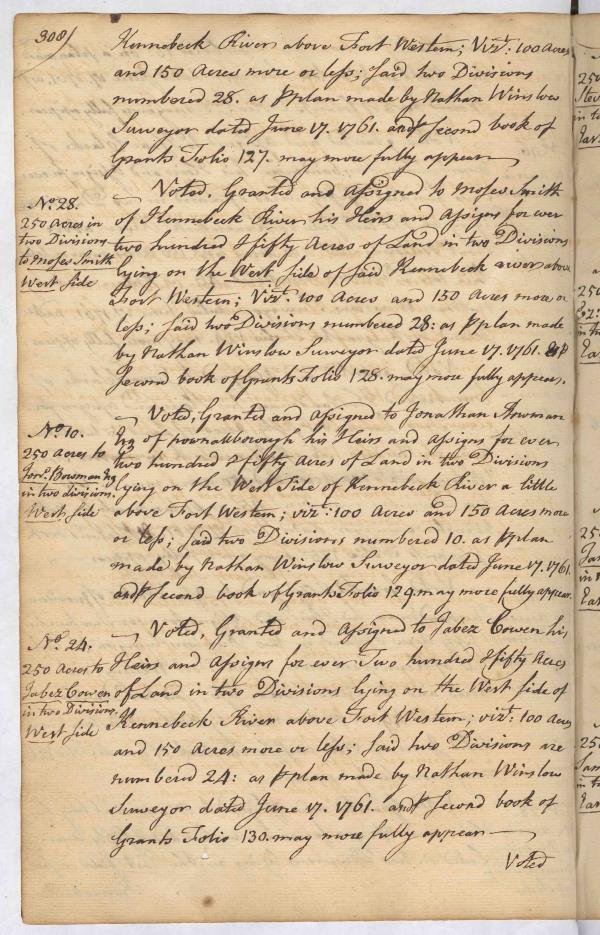 308/
Kennebeck River above Fort Western; Vizt: 100 Acres
and 150 Acres more or less; said two Divisions
numbered 28. as ⅌ plan made by Nathan Winslow
Surveyor dated June 17. 1761. and ⅌ Second book of
Grants Folio 127. may more fully appear
No 28.
250 Acres in
two Divisions
to Moses Smith
West side
Voted, Granted and Assigned to Moses Smith
of Kennebeck River his Heirs and Assigns for ever
two hundred & fifty Acres of Land in two Divisions
lying on the West side of said Kennebeck River above
Fort Western; Vizt. 100 Acres and 150 Acres more or
less; said two Divisions numbered 28: as ⅌ plan made
by Nathan Winslow Surveyor dated June 17. 1761. & ⅌
Second book of Grants Folio 128. may more fully appear.
No 10.
250 Acres to
Jona. Bowman Esq
in two divisions.
West side
Voted, Granted and assigned to Jonathan Bowman
Esq of pownalborough his Heirs and assigns for ever
two hundred & fifty Acres of Land in two Divisions
lying on the West Side of Kennebeck River a little
above Fort Western; vizt: 100 Acres and 150 Acres more
or less; said two Divisions numbered 10. as ⅌ plan
made by Nathan Winslow Surveyor dated June 17. 1761.
and ⅌ Second book of Grants Folio 129. may more fully appear.
No. 24.
250 Acres to
Jabez Cowen
in two Divisions.
West side
Voted, Granted and Assigned to Jabez Cowen his
Heirs and Assigns for ever Two hundred & fifty Acres
of Land in two Divisions lying on the West side of
Kennebeck River above Fort Western; vizt: 100 Acres
and 150 Acres more or less; said two Divisions are
numbered 24: as ⅌ plan made by Nathan Winslow
Surveyor dated June 17. 1761. and ⅌ Second book of
Grants Folio 130. may more fully appear
Voted